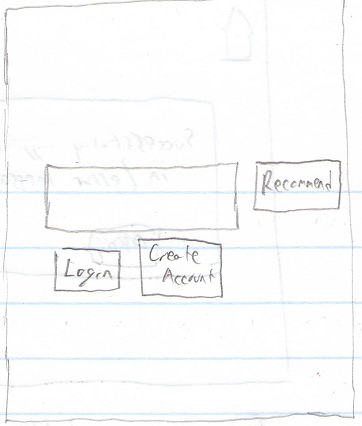 Recommend
Login
Create
Account